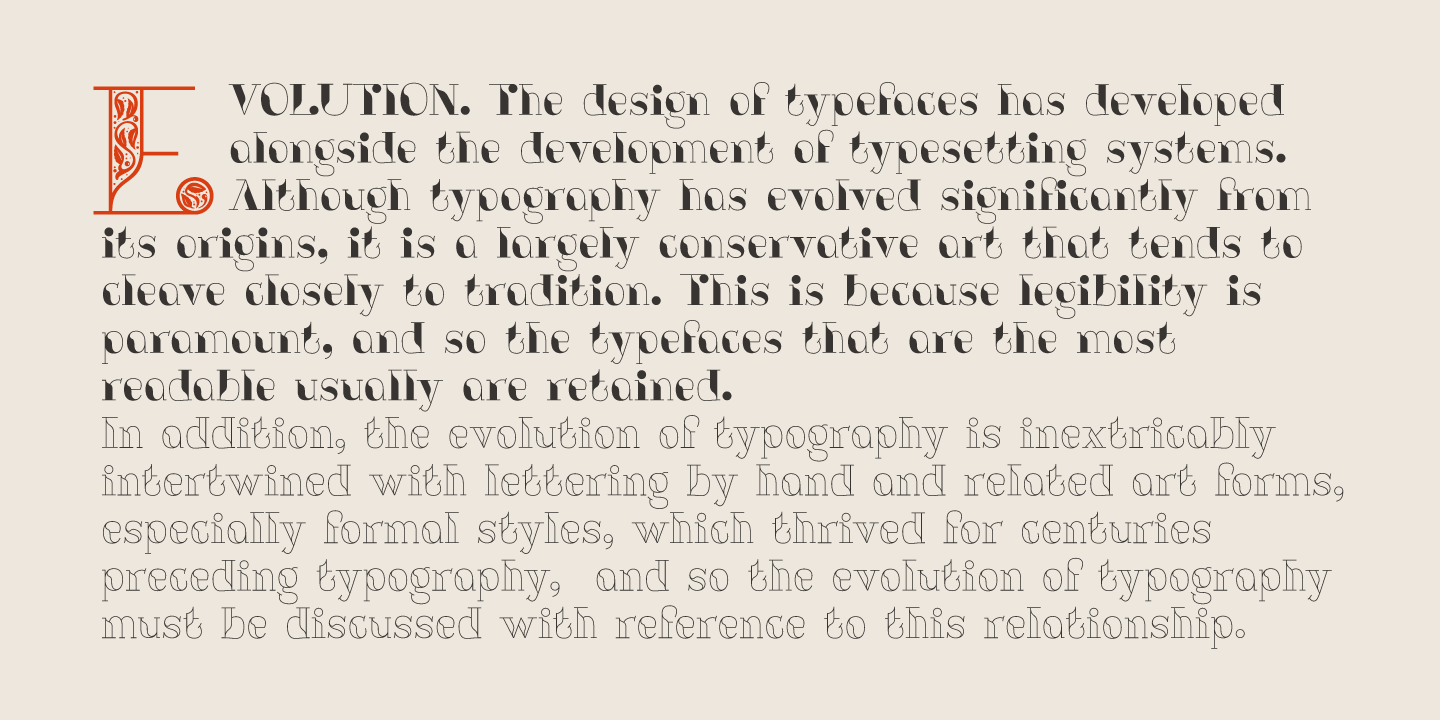 EVOLUTION. The design of typefaces has developed
alongside the development of typesetting systems.
Although typography has evolved significantly from
its origins, it is a largely conservative art that tends to
cleave closely to tradition. This is because legibility is
paramount, and so the typefaces that are the most
readable usually are retained.
In addition, the evolution of typography is inextricably
intertwined with lettering by hand and related art forms,
especially formal styles, which thrived for centuries
preceding typography,  and so the evolution of typography
must be discussed with reference to this relationship.